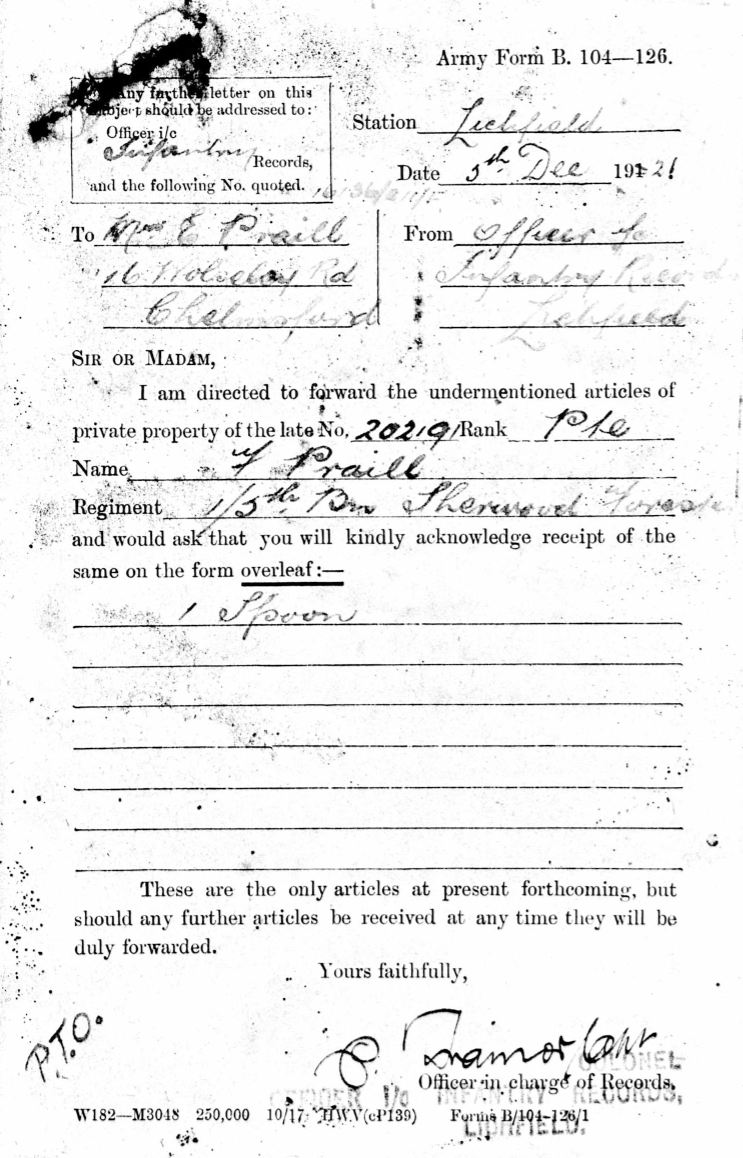 Army Form B. 104—126.
Any further letter on this
subject should be addressed to:
Officer i/c
Infantry Records,
and the following No. quoted.
Station Lichfield
Date 5th Dec 1921
To Mrs E Praill
16 Rd
Chelmsford
From Officer i/c
Infantry Records
Lichfield
SIR OR MADAM,
I am directed to forward the undermentioned articles of
private property of the late No. 202191 Rank Pte
Name F Praill
Regiment 1/5th Bn Sherwood Foresters
and would ask that you will kindly acknowledge receipt of the
same on the form overleaf:—
1 Spoon
These are the only articles at present forthcoming, but
should any further articles be received at any time they will be
duly forwarded.
Yours faithfully,
P.T.O.
Capt
COLONEL
Officer in charge of Records.
i/c INFANTRY RECORDS,
W182—M3048 250,000 10/17 HWV(cP139) Forms B/104-126/1
LICHFIELD.